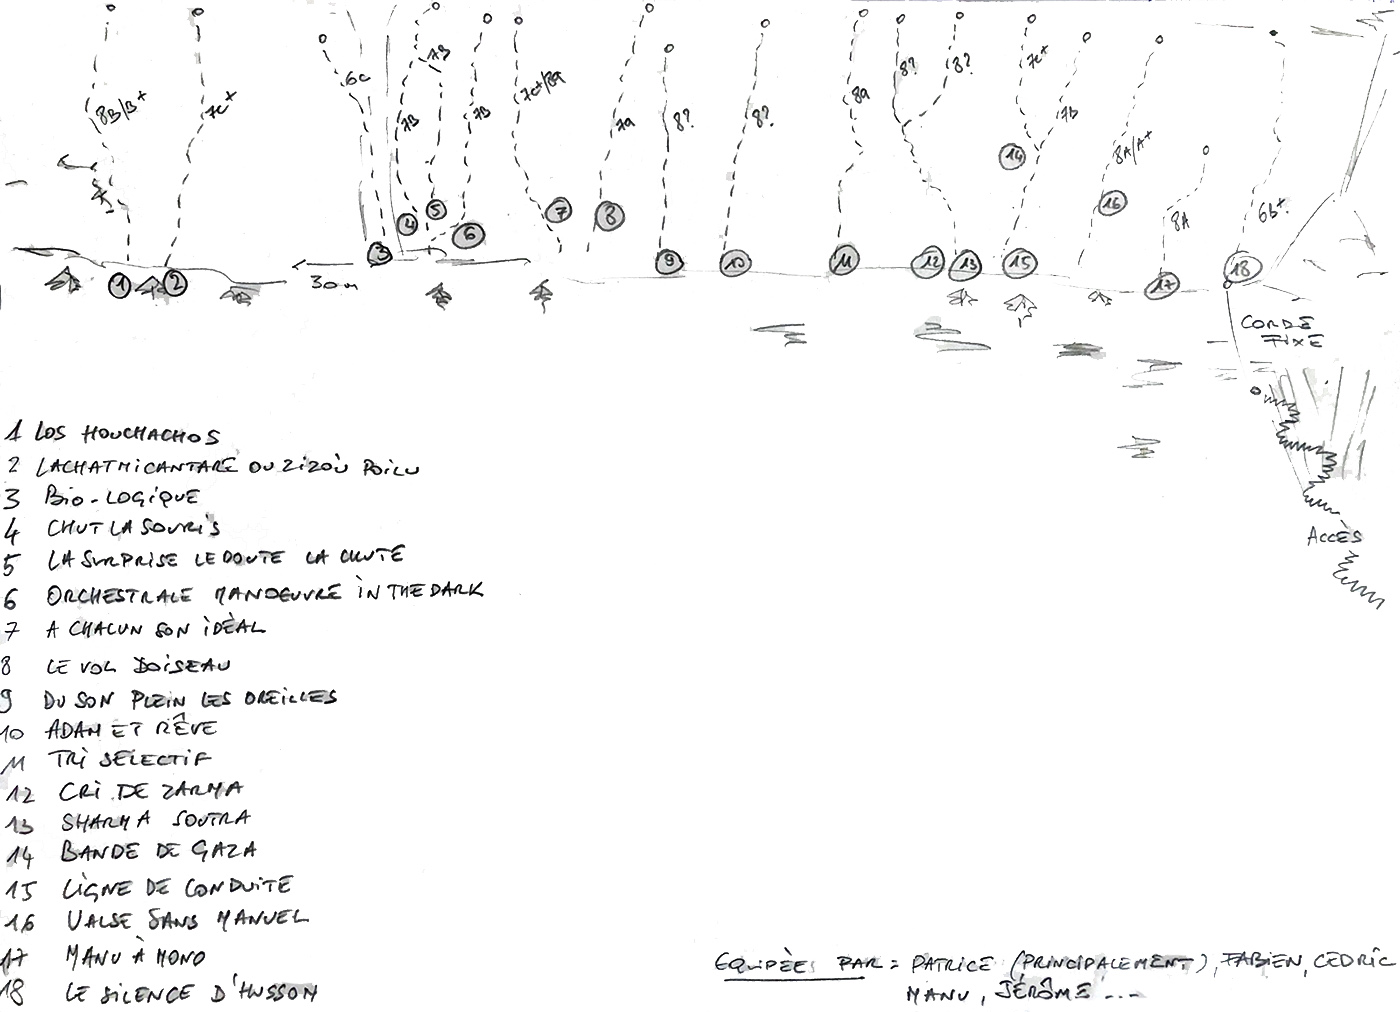 8B/B+
7c+
6c
7B
7B
7B
7c+/8a
7a
8?
8?
8a
8?
8?
7c+
7b
8A/A+
8A
6b+
1
2
3
4
5
6
7
8
9
10
11
12
13
14
15
16
17
18
30m
CORDE
FIXE
ACCÈS
1 LOS HOUCHACHOS
2 LACHATMICANTARE OU ZIZOÙ POILU
3 BIO-LOGIQUE
4 CHUT LA SOURIS
5 LA SURPRISE LE DOUTE LA CHUTE
6 ORCHESTRALE MANOEUVRE IN THE DARK
7 A CHACUN SON IDÈAL
8 LE VOL DOISEAU
9 DU SON PLEIN LES OREILLES
10 ADAM ET RÊVE
11 TRI SELECTIF
12 CRI DE ZARMA
13 SHARMA SOUTRA
14 BANDE DE GAZA
15 LIGNE DE CONDUITE
16 VALSE SANS MANUEL
17 MANU À MONO
18 LE SILENCE D'HUSSON
EQUIPÈES PAR = PATRICE (PRINCIPALEMENT), FABIEN, CEDRIC
MANU, JÉRÔME ...